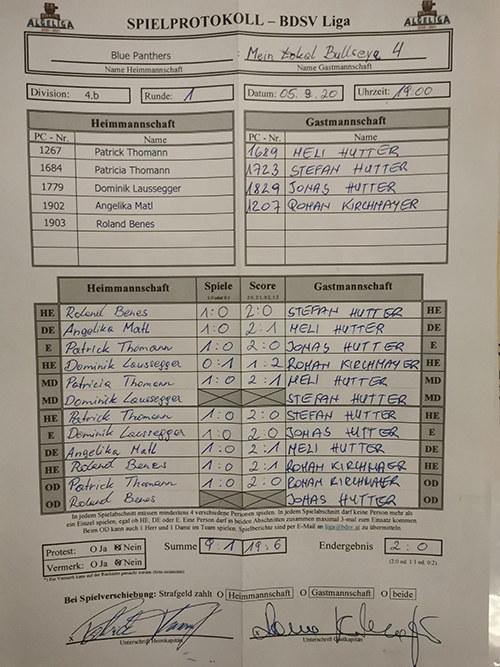 ALGELIGA
SPIELPROTOKOLL – BDSV Liga
ALGELIGA
Blue Panthers Mein Lokal Bullseye 4
Name Heimmannschaft Name Gastmannschaft
Division: 4.b Runde: 1 Datum: 05.9.20 Uhrzeit: 19:00
Heimmannschaft Gastmannschaft
PC - Nr. Name PC - Nr. Name
1267 Patrick Thomann 1689 MELI HUTTER
1684 Patricia Thomann 1723 STEFAN HUTTER
1779 Dominik Laussegger 1829 JONAS HUTTER
1902 Angelika Matl 1207 ROMAN KIRCHMAYER
1903 Roland Benes
Heimmannschaft Spiele Score Gastmannschaft
1:0 oder 0:1 2:0, 2:1, 0:2, 1:2
HE Roland Benes 1:0 2:0 STEFAN HUTTER HE
DE Angelika Matl 1:0 2:1 MELI HUTTER DE
E Patrick Thomann 1:0 2:0 JONAS HUTTER E
HE Dominik Laussegger 0:1 1:2 ROMAN KIRCHMAYER HE
MD Patricia Thomann 1:0 2:1 MELI HUTTER MD
MD Dominik Laussegger STEFAN HUTTER MD
HE Patrick Thomann 1:0 2:0 STEFAN HUTTER HE
E Dominik Laussegger 1:0 2:0 JONAS HUTTER E
DE Angelika Matl 1:0 2:1 MELI HUTTER DE
HE Roland Benes 1:0 2:1 ROMAN KIRCHMAER HE
OD Patrick Thomann 1:0 2:0 ROMAN KIRCHMAER OD
OD Roland Benes JONAS HUTTER OD
In jedem Spielabschnitt müssen mindestens 4 verschiedene Personen spielen. In jedem Spielabschnitt darf keine Person mehr als
ein Einzel spielen, egal ob HE, DE oder E. Eine Person darf in beiden Abschnitten zusammen maximal 3-mal zum Einsatz kommen.
Beim OD kann auch 1 Herr und 1 Dame im Team spielen. Spielberichte sind per E-Mail an liga@bdsv.at zu übermitteln.
Protest: O Ja O Nein Summe 9:1 19:6 Endergebnis 2:0
Vermerk: O Ja O Nein (2:0 od. 1:1 od. 0:2)
*) Ein Vermerk kann auf der Rückseite gemacht werden
Bei Spielverschiebung: Strafgeld zahlt O Heimmannschaft O Gastmannschaft O beide
Unterschrift Heimkapitän Unterschrift Gastkapitän